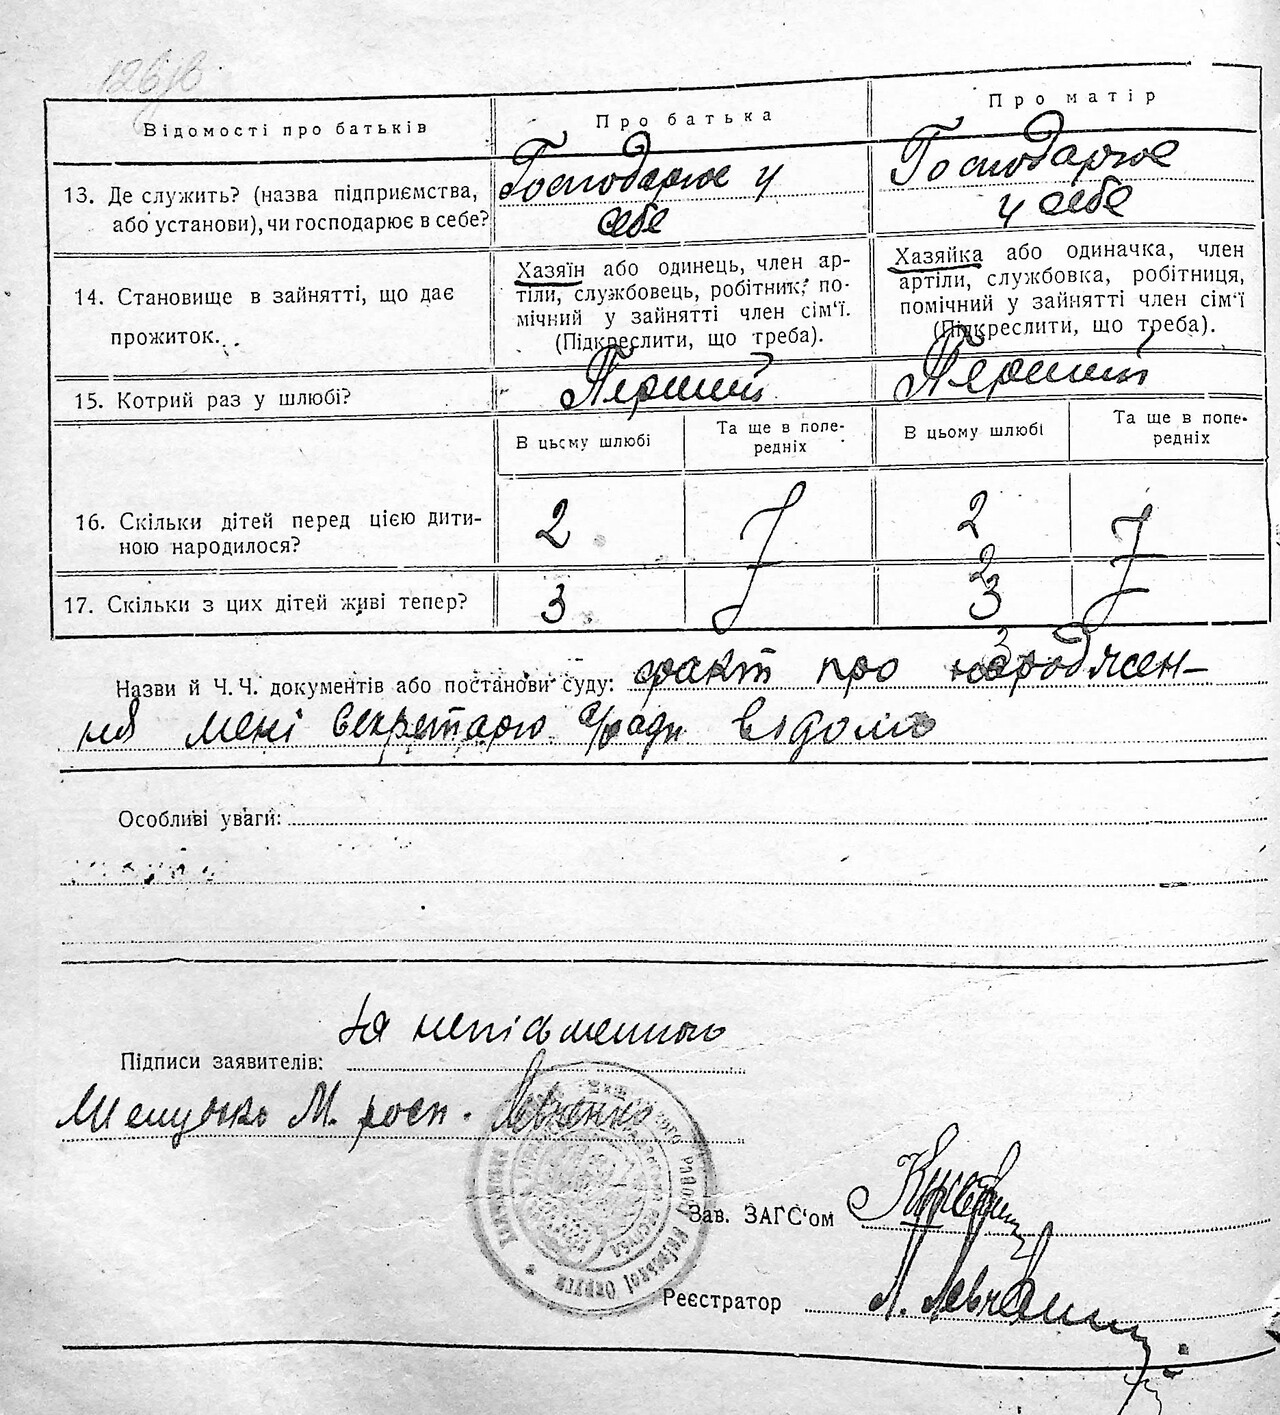 Відомості про батьків
Про батька
Про матір
13. Де служить? (назва підприємства,
або установи), чи господарює в себе?
Господарює у
себе
Господарює
у себе
14. Становище в зайнятті, що дає
прожиток.
Хазяїн або одинець, член ар-
тіли, службовець, робітник, по-
мічний у зайнятті член сім'ї.
(Підкреслити, що треба).
Хазяйка або одиначка, член
артіли, службовка, робітниця,
помічний у зайнятті член сім'ї
(Підкреслити, що треба).
15. Котрий раз у шлюбі?
Перший
Перший
В цьому шлюбі
Та ще в попе-
редніх
В цьому шлюбі
Та ще в попе-
редніх
16. Скільки дітей перед цією дити-
ною народилося?
2
2
17. Скільки з цих дітей живі тепер?
3
3
Назви й Ч. Ч. документів або постанови суду: факт про народжен-
ня мені секретарю с/ради відомо
Особливі уваги:
За неписьменного
Підписи заявителів:
М. росп. Левченко
Зав. ЗАГС'ом
Реєстратор Л. Левченко